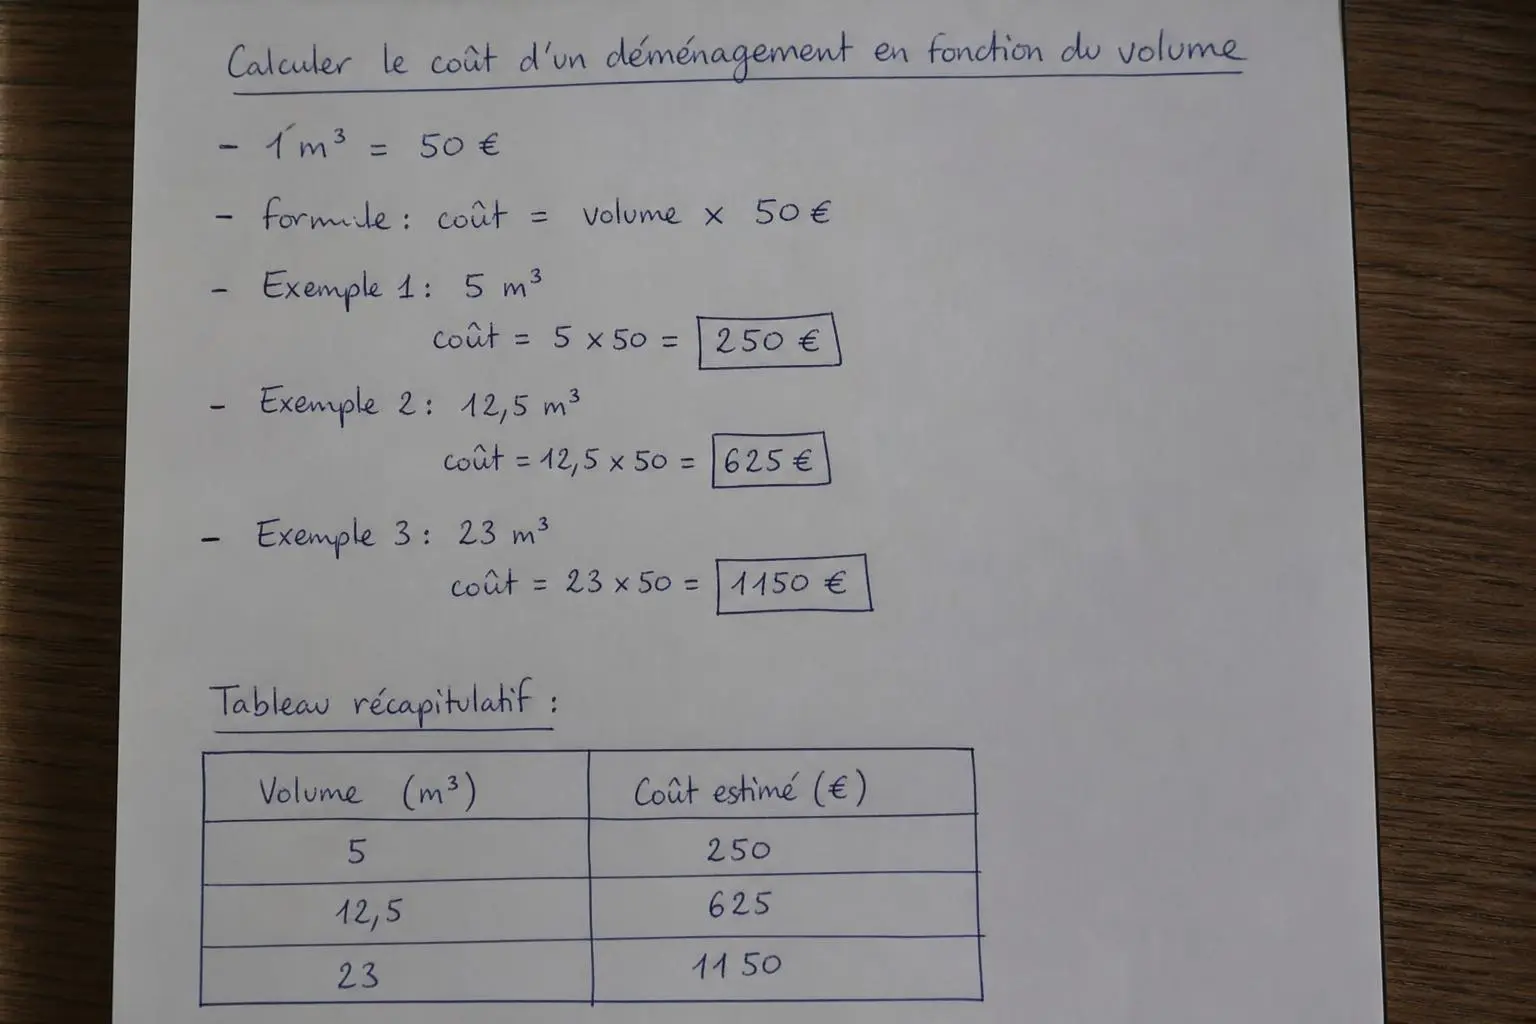 Calculer le coût d'un déménagement en fonction du volume
- 1 m³ = 50 €
- formule : coût = volume x 50 €
- Exemple 1 : 5 m³
coût = 5 x 50 = 250 €
- Exemple 2 : 12,5 m³
coût = 12,5 x 50 = 625 €
- Exemple 3 : 23 m³
coût = 23 x 50 = 1150 €
Tableau récapitulatif :
Volume (m³) Coût estimé (€)
5 250
12,5 625
23 1150